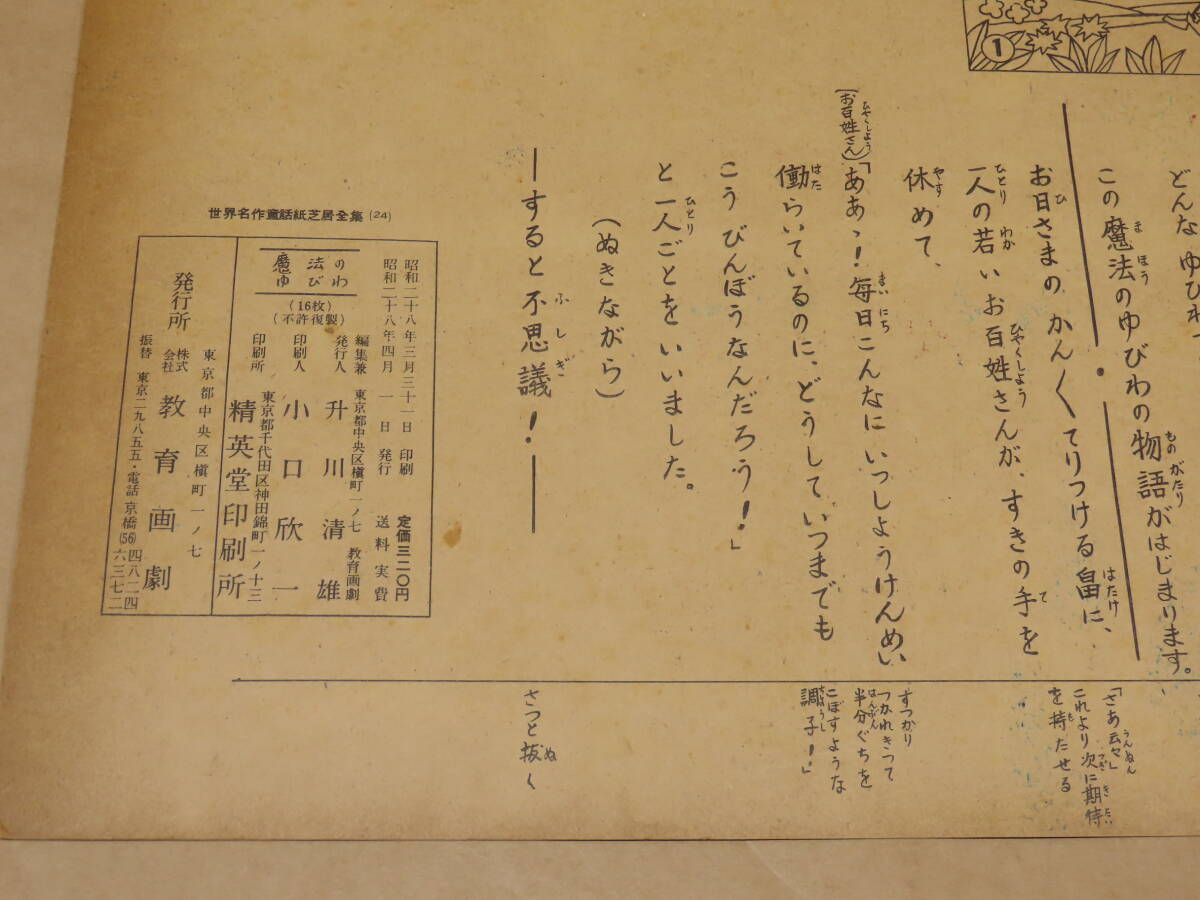 ①
どんなゆびわ
この魔法のゆびわの物語がはじまります。
お日さまのかんくてりつける畠に、
一人の若いお百姓さんが、すきの手を
休めて、
(お百姓さん)「ああ、!毎日こんなにいっしょうけんめい
働らいているのに、どうしていつまでも
こうびんぼうなんだろう!」
と一人ごとをいいました。
(ぬきながら)
―すると不思議!―
「さあ云々」
これより次に期待
を持たせる
すつかり
つかれきつて
半分ぐちを
こぼすような
調子!」
さつと抜く
世界名作童話紙芝居全集(24)
昭和二十八年三月三十一日 印刷 定価三二〇円
昭和二十八年四月 一日 発行 送料実費
魔法の
ゆびわ
(16枚)
(不許復製)
編集兼
発行人
東京都中央区槇町一ノ七 教育画劇
升川清雄
印刷人 小口欣一
東京都千代田区神田錦町一ノ十三
印刷所 精英堂印刷所
東京都中央区槇町一ノ七
発行所 株式会社 教育画劇
振替 東京二九八五五・電話 京橋(56)四八二四
六三七二